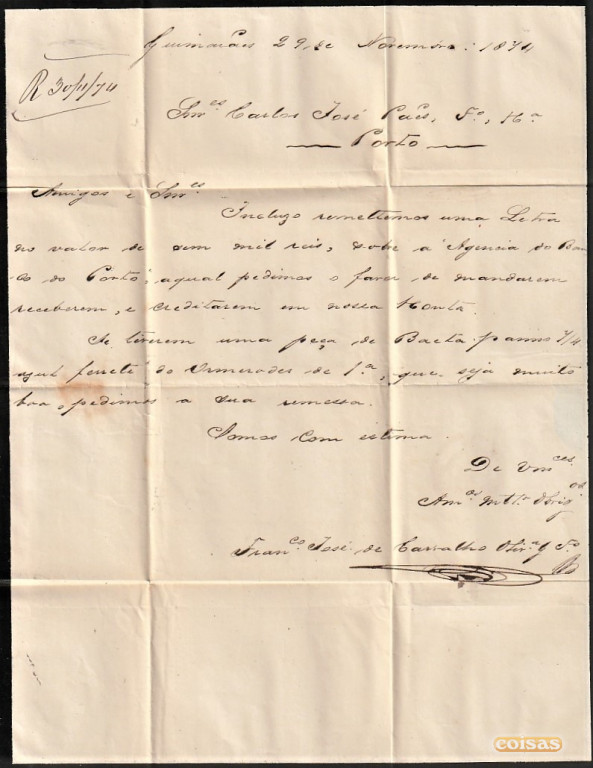 Guimarães 29 de Novembro: 1874
R 30/11/74
Snr.es Carlos José Pães, F.o, & C.a
Porto
Amigos e Snr.es
Incluzo remettemos uma Letra
no valor de cem mil reis, sobre a Agencia do Ban
co do Porto, aqual pedimos o favor de mandarem
receberem, e creditarem em nossa Conta.
Se tiverem uma peça de Baeta panno 7/4
azul ferrete do de 1.a, que seja muito
boa, pedimos a sua remessa.
Somos com estima
De Vm.ces
Am.os Mt.o Obrig.os
Fran.co José de Carvalho Oliv.a & F.o
coisas